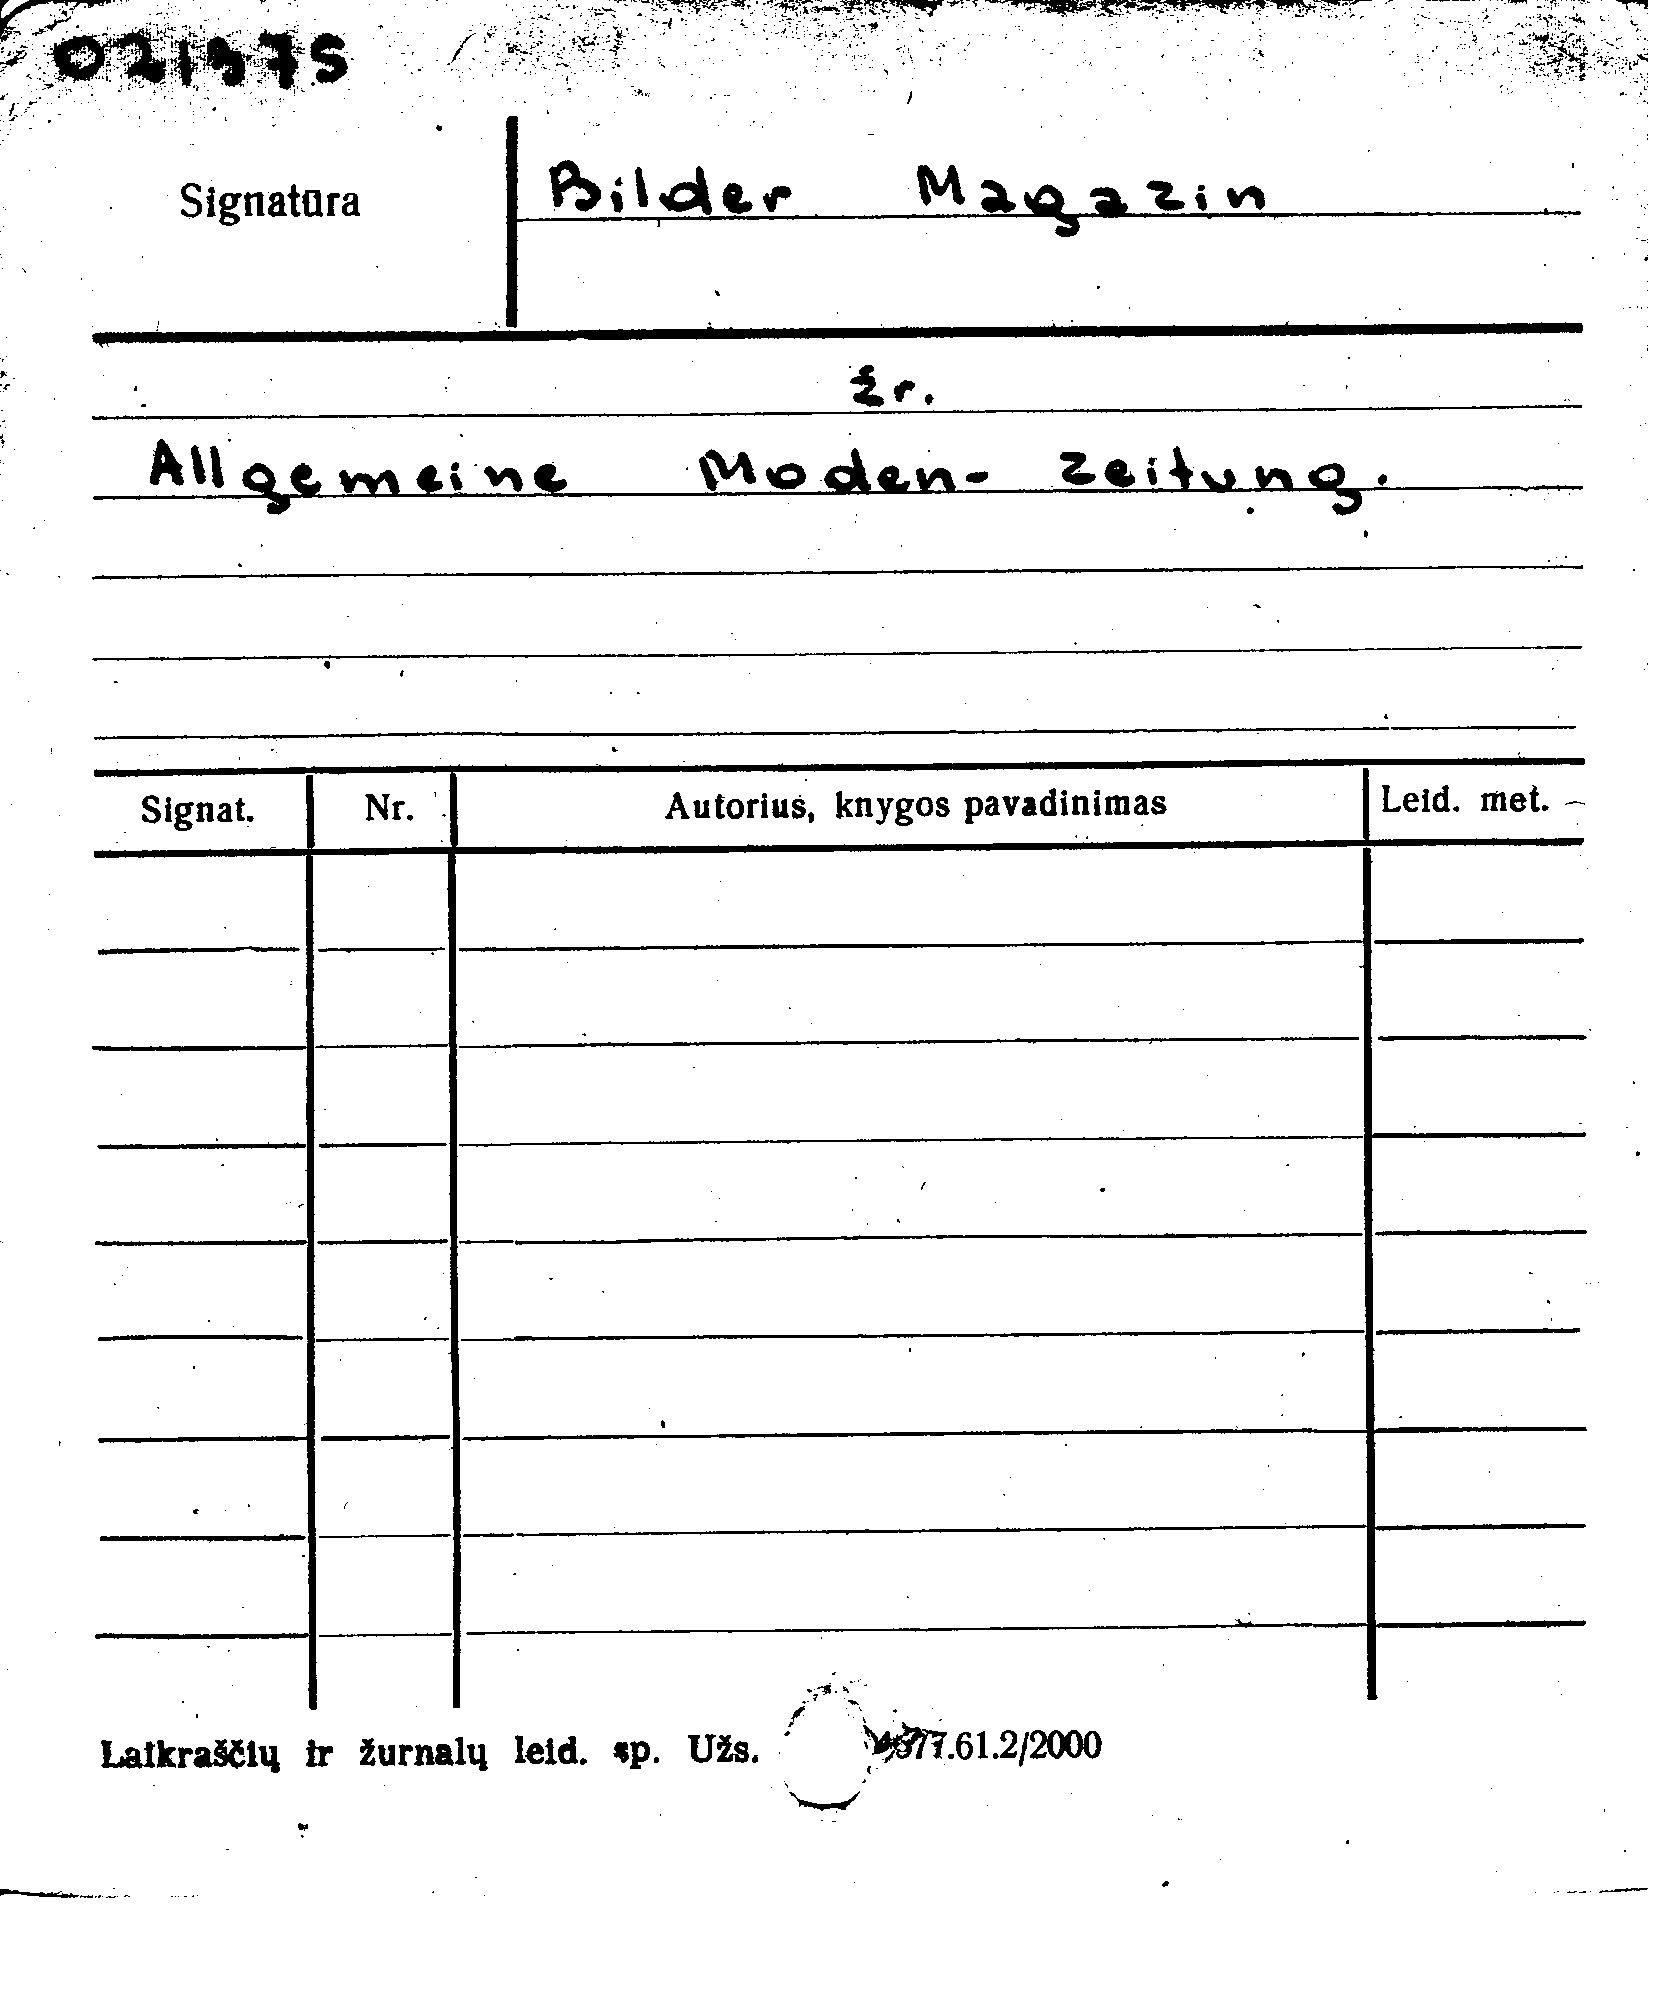 Signatūra
Bilder Magazin
žr.
Allgemeine Moden- zeitung.
Signat. Nr. Autorius, knygos pavadinimas Leid. met.
Laikraščių ir žurnalų leid. sp. Užs. 4377.61.2/2000